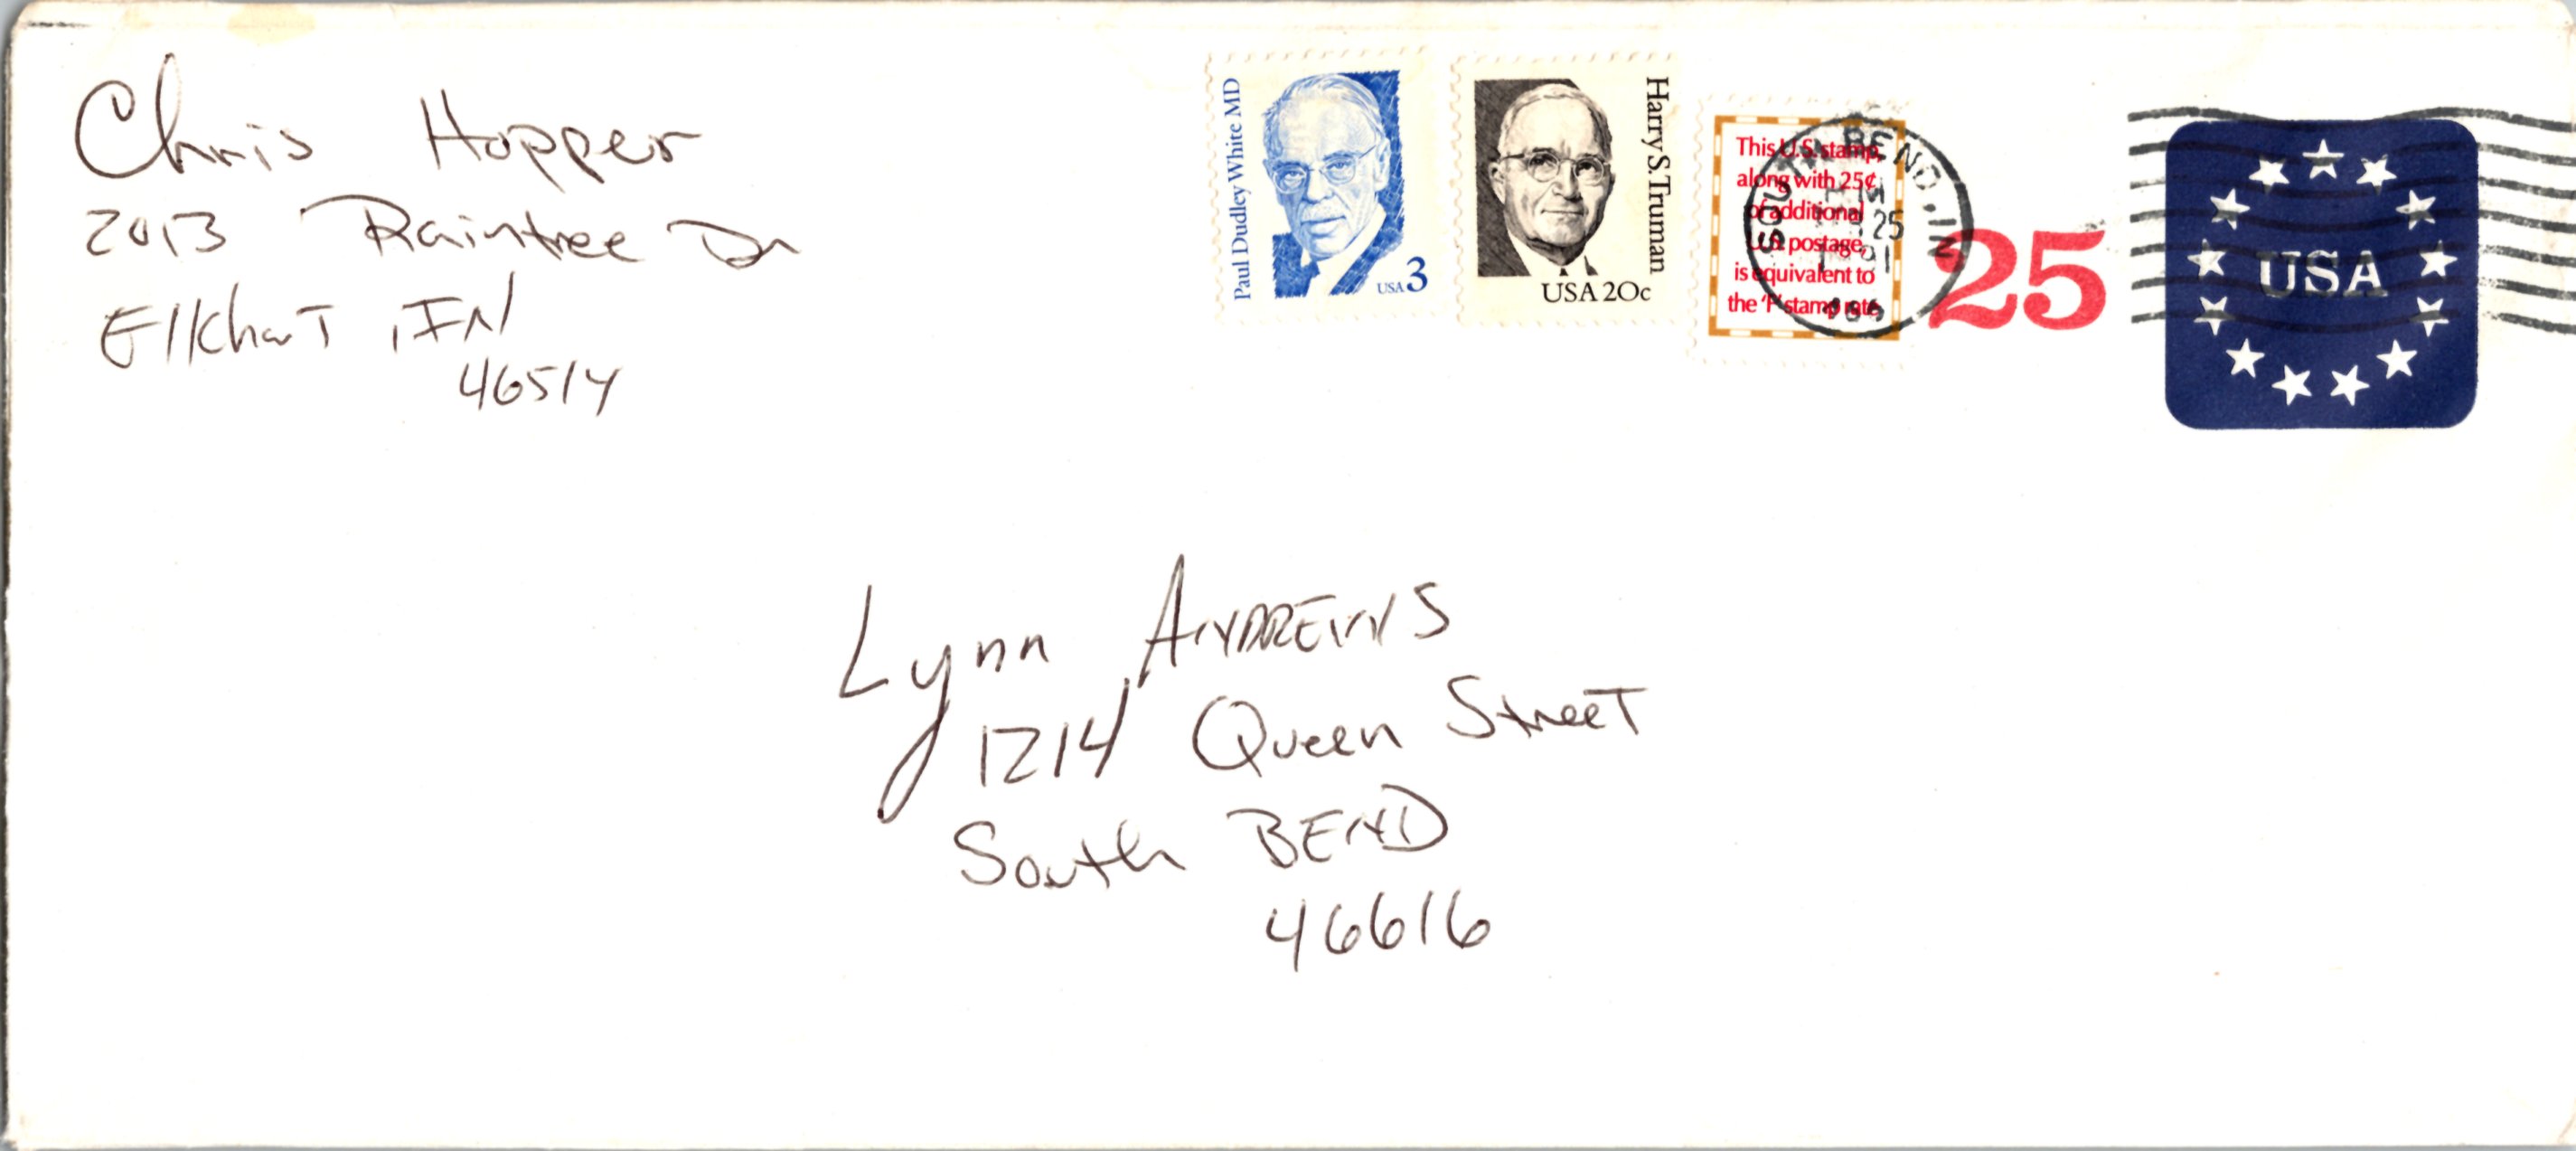 Chris Hopper
2013 Raintree Dr
Elkhart, IN
46514
Paul Dudley White MD
USA 3
Harry S. Truman
USA 20c
This U.S. stamp,
along with 25¢
of additional
U.S. postage,
is equivalent to
the 'F' stamp rate
SOUTH BEND, IN
PM
25
1991
466
25
USA
Lynn ANDREWS
1214 Queen Street
South BEND
46616